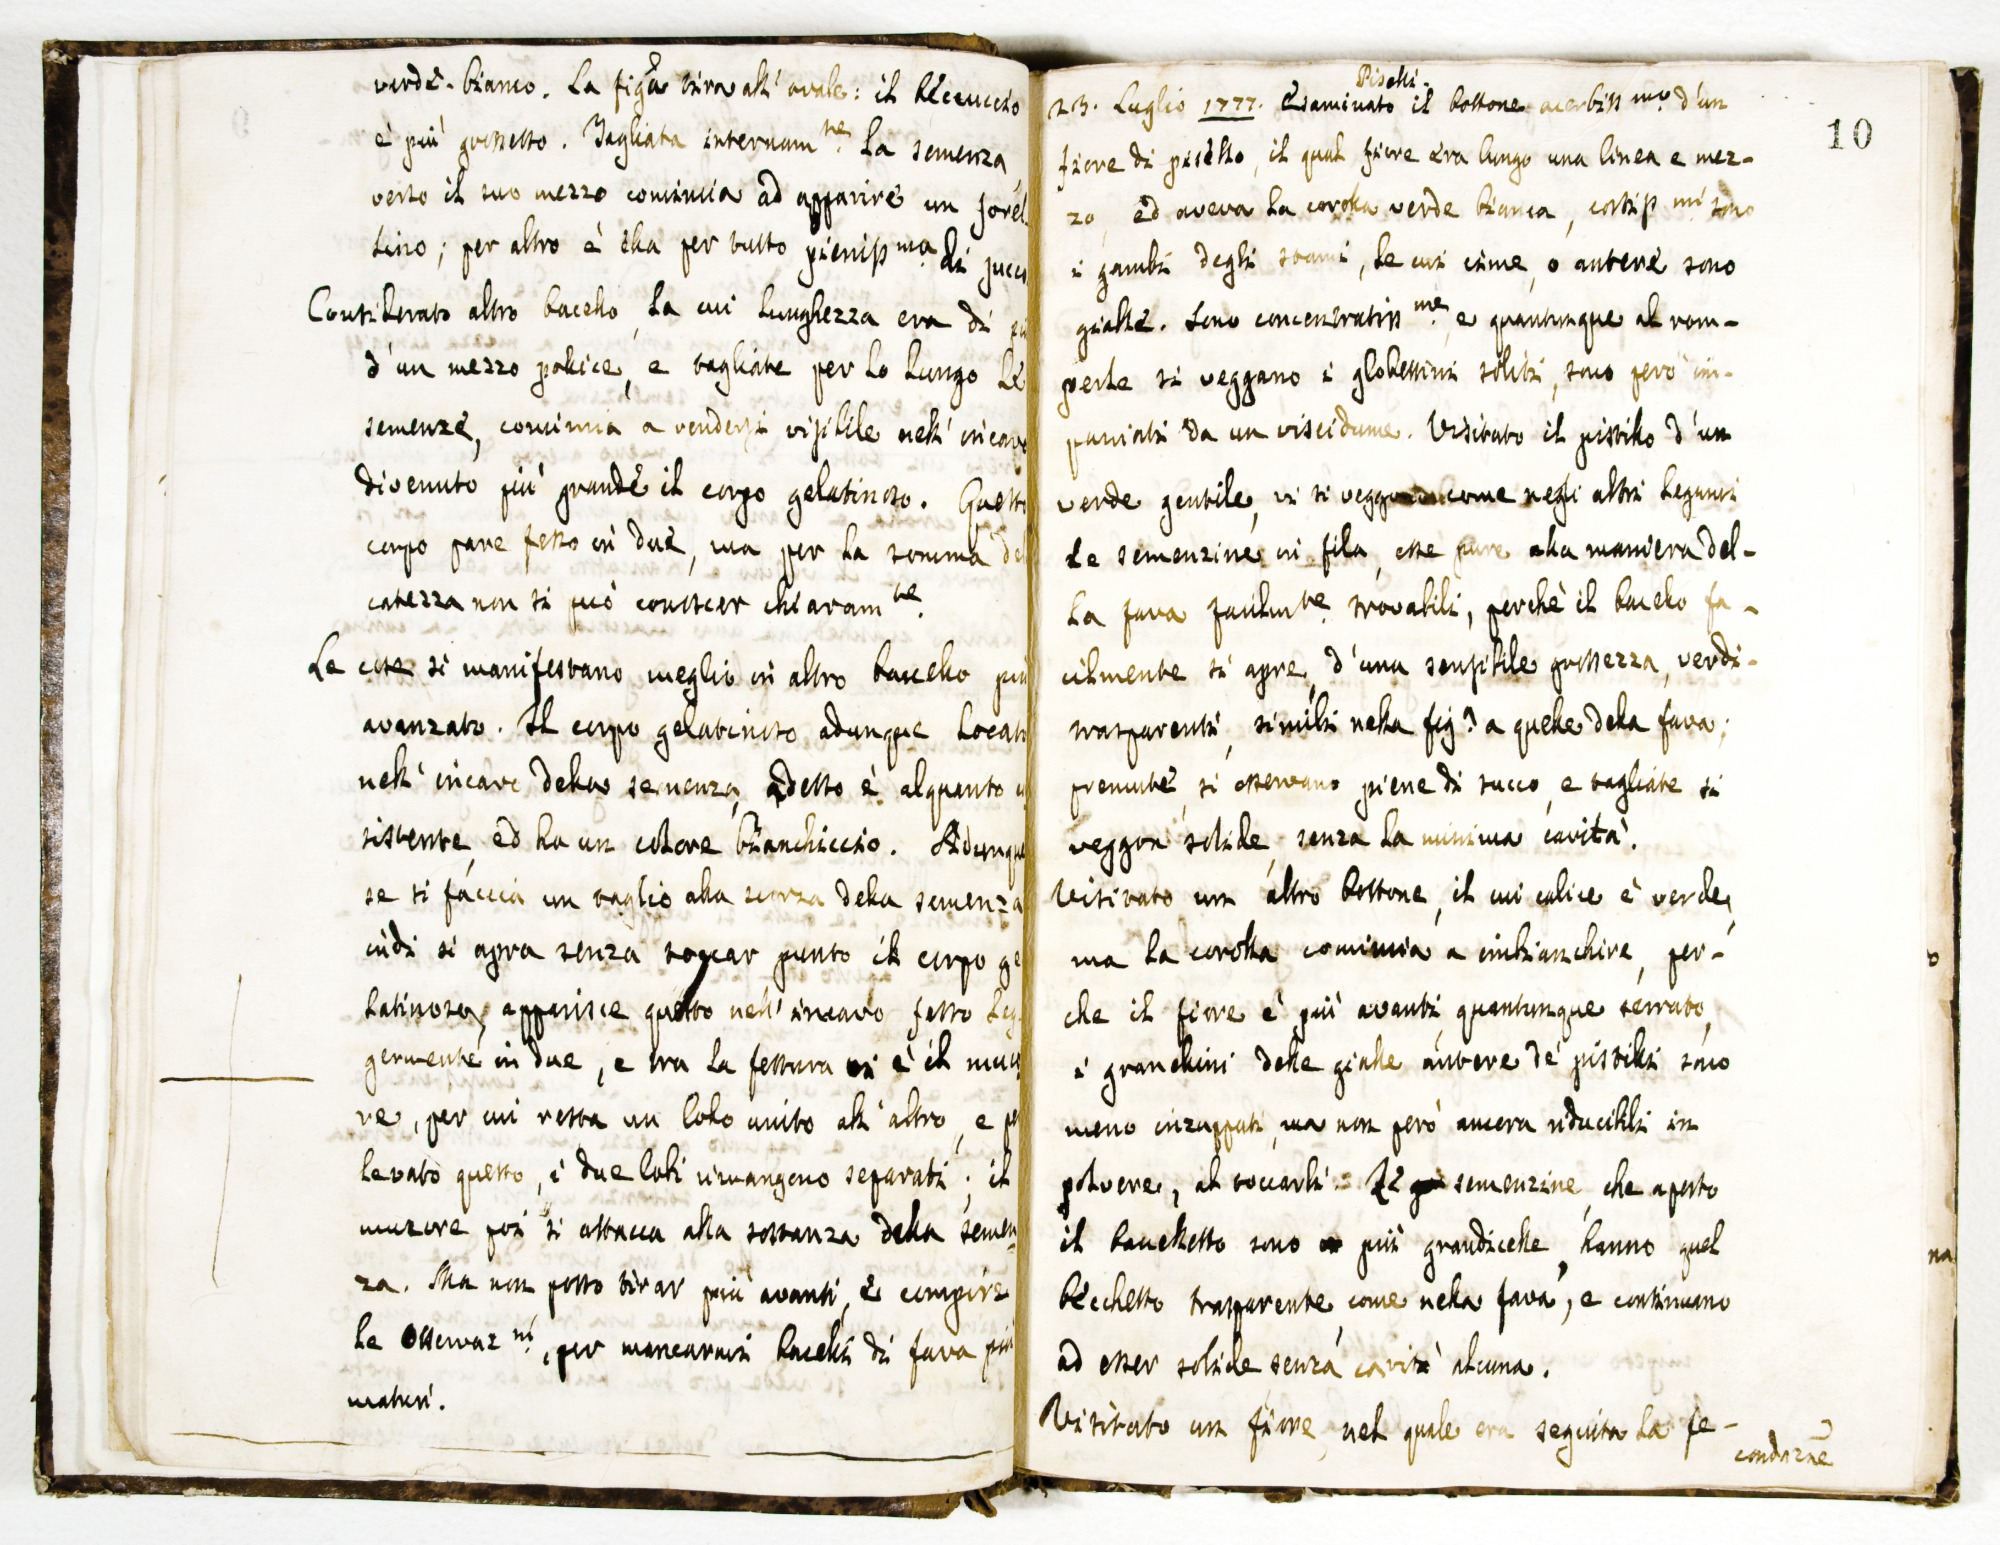 verde-bianco. La figª tira all' ovale: il beccuccio
è più grossetto. Tagliata internamᵗᵉ la semenza,
verso il suo mezzo comincia ad apparire un forel-
lino; per altro è ella per tutto pienissᵐᵃ di succo
Considerato altro baccello, la cui lunghezza era di più
d'un mezzo pollice, e tagliate per lo lungo le
semenze, comincia a rendersi visibile nell' incavo
divenuto più grande il corpo gelatinoso. Questo
corpo pare fesso in due, ma per la somma deli
catezza non si può conoscer chiaramᵗᵉ.
Le cose si manifestano meglio in altro baccello più
avanzato. Il corpo gelatinoso adunque locato
nell' incavo della semenza, adesso è alquanto
sistente, ed ha un colore bianchiccio. Adunque
se si faccia un taglio alla scorza della semenza
indi si apra senza toccar punto il corpo ge
latinoso, apparisce questo nell' incavo fesso leg
germente in due, e tra la fessura vi è il muco
re, per cui resta un lobo unito all' altro, e per
levato questo, i due lobi rimangono separati; il
mucore poi si attacca alla sostanza della semen-
za. Ma non posso tirar più avanti, e compire
le Osservazⁿⁱ, per mancarmi baccelli di fava più
maturi.
10
Piselli.
23. Luglio 1777. Esaminato il bottone acerbissᵐᵒ d'un
fiore di pisello, il qual fiore era lungo una linea e mez-
zo, ed aveva la corolla verde bianca, cortissᵐⁱ sono
i gambi degli stami, le cui cime, o antere sono
gialle. Sono concentratissᵐᵉ, e quantunque al rom-
perle si veggano i globettini soliti, sono però im-
paniati da un viscidume. Visitato il pistillo d'un
verde gentile, vi si veggono come negli altri legumi
le semenzine in fila, esse pure alla maniera del-
la fava facilmᵗᵉ trovabili, perchè il baccello fa-
cilmente si apre, d'una sensibile grossezza, verdi-
trasparenti, simili nella figª a quelle della fava;
premute, si osservano piene di succo, e tagliate si
veggon solide, senza la minima cavità.
Visitato un altro bottone, il cui calice è verde,
ma la corolla comincia a imbianchire, per-
che il fiore è più avanti, quantunque serrato,
i granellini delle gialle antere de' pistilli sono
meno inzuppati, ma non però ancora riducibili in
polvere, al toccarli. Le semenzine, che aperto
il baccelletto sono più grandicelle, hanno quel
becchetto trasparente, come nella fava, e continuano
ad esser solide senza cavità alcuna.
Visitato un fiore, nel quale era seguita la fe-
condazne